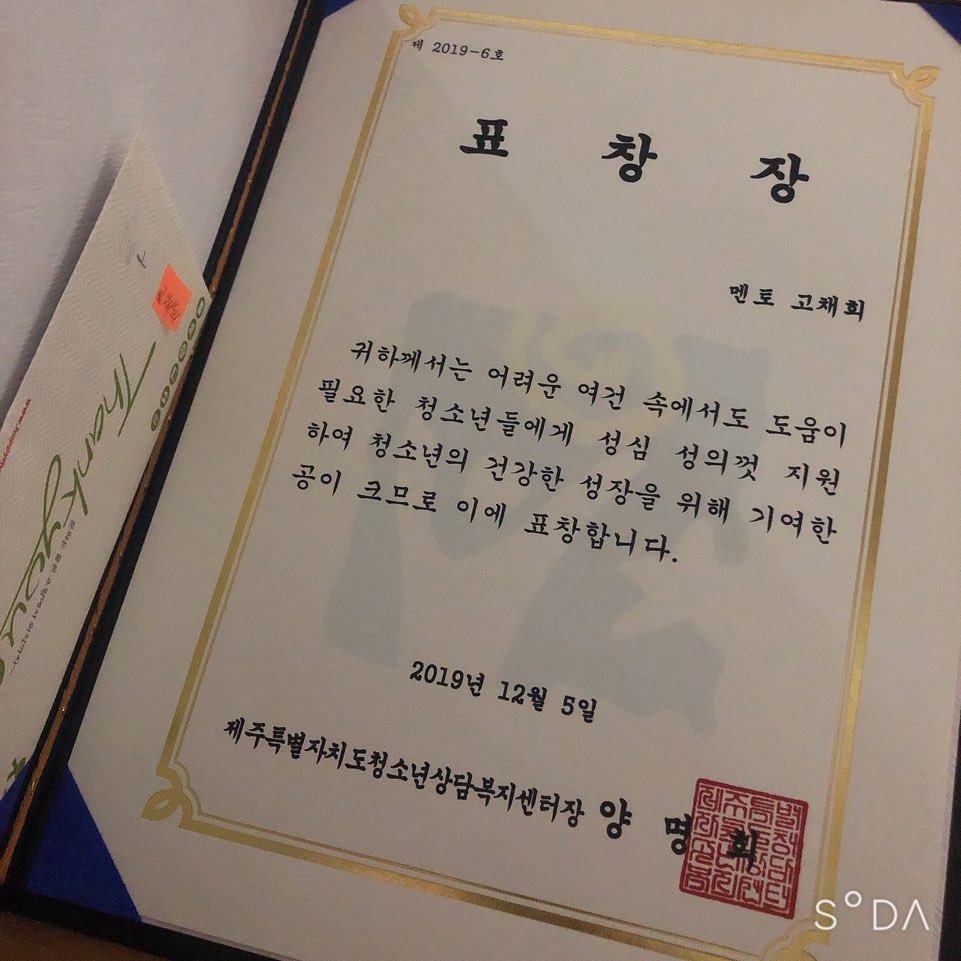 제 2019-6호
표 창 장
멘토 고채희
귀하께서는 어려운 여건 속에서도 도움이
필요한 청소년들에게 성심 성의껏 지원
하여 청소년의 건강한 성장을 위해 기여한
공이 크므로 이에 표창합니다.
2019년 12월 5일
제주특별자치도청소년상담복지센터장 양 명 희
Thank you
SODA